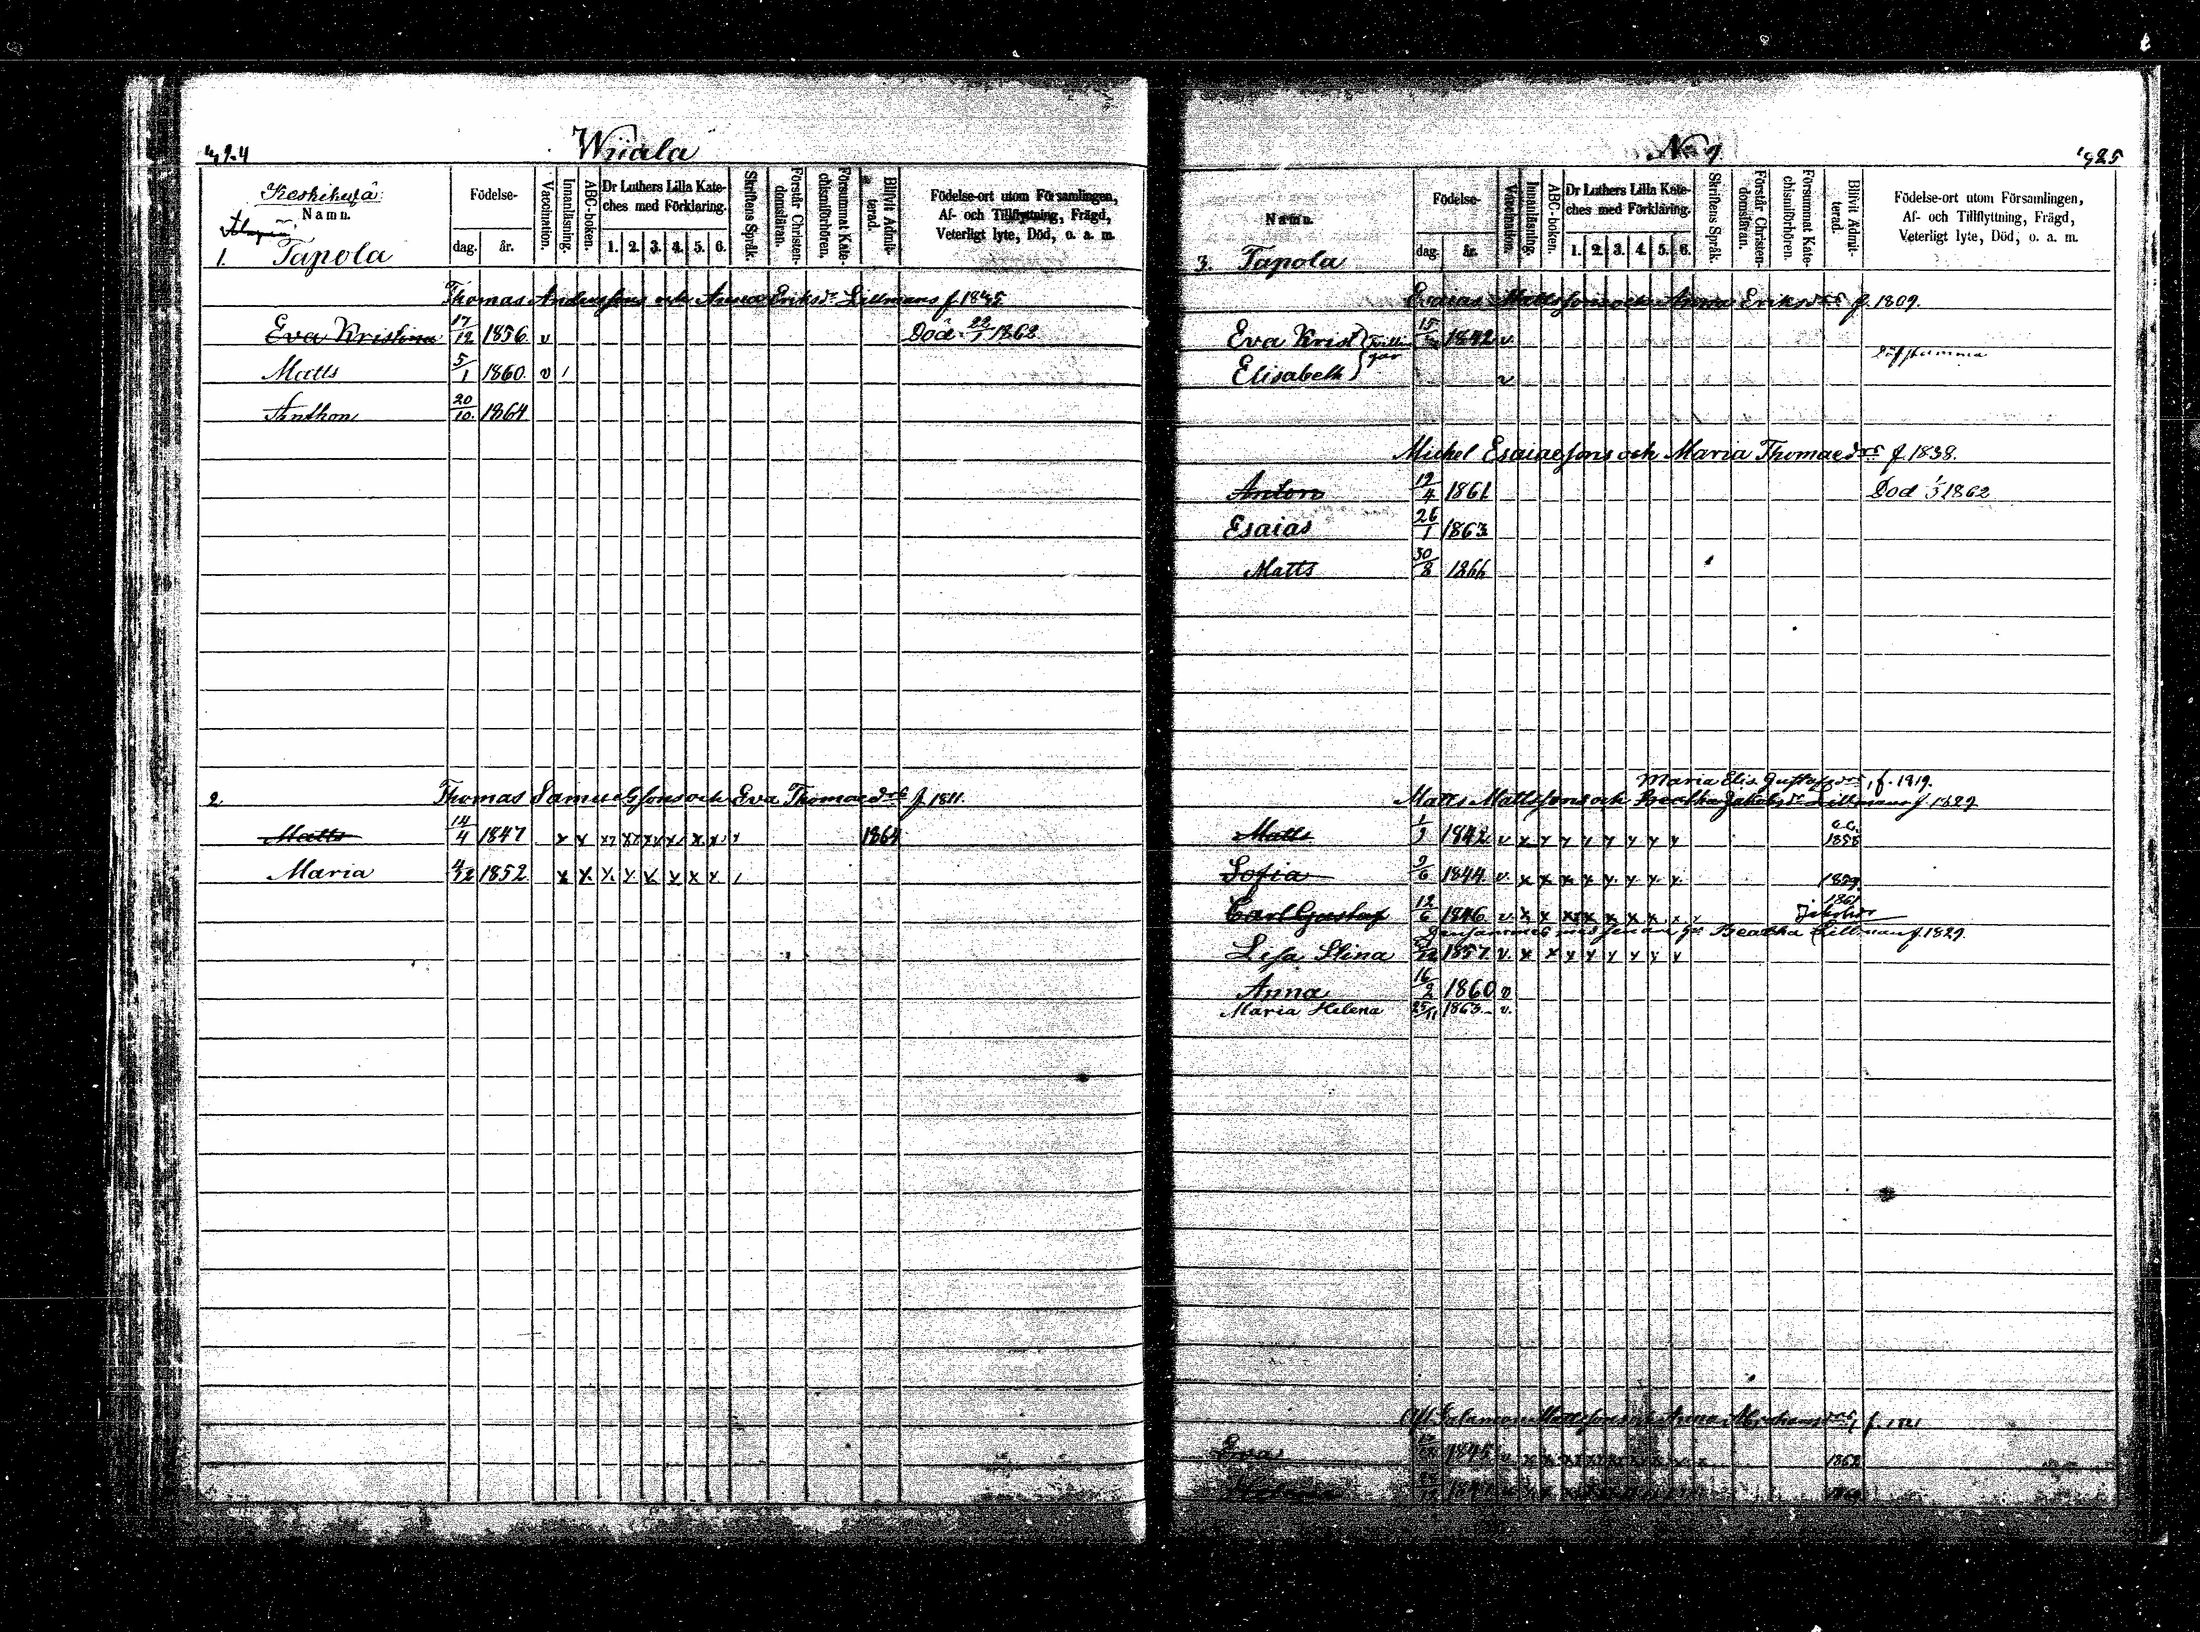 424 Wriala
Keskikylä
Namn.
Födelse-
dag. år.
Vaccination.
Innanläsning.
ABC-boken.
Dr Luthers Lilla Kate-
ches med Förklaring.
1. 2. 3. 4. 5. 6.
Skriftens Språk.
Förstår Christen-
domsläran.
Försummat Kate-
chismiförhören.
Blivit Admit-
terad.
Födelse-ort utom Församlingen,
Af- och Tillflyttning, Frägd,
Veterligt lyte, Död, o. a. m.
1. Tapola
Thomas Anderssons och Anna Eriksdr Lillmans f. 1835
Eva Kristina 17/12 1856. v Död 22/1 1862
Matts 5/1 1860. v /
Anthon 20/10. 1864
2. Thomas Samuelssons och Eva Thomaedrs f. 1811.
Matts 14/4 1847 x x x x x x x x x 1864
Maria 4/12 1852 x x x x x x x x /
No 1. 425
Namn.
Födelse-
dag. år.
Vaccination.
Innanläsning.
ABC-boken.
Dr Luthers Lilla Kate-
ches med Förklaring.
1. 2. 3. 4. 5. 6.
Skriftens Språk.
Förstår Christen-
domsläran.
Försummat Kate-
chismiförhören.
Blivit Admit-
terad.
Födelse-ort utom Församlingen,
Af- och Tillflyttning, Frägd,
Veterligt lyte, Död, o. a. m.
3. Tapola
Esaias Mattssons och Anna Eriksdrs f. 1809.
Eva Krist 15/ 1842 v.
Elisabeth v
Michel Esaiaesons och Maria Thomaedrs f. 1838.
Anton 19/4 1861 Död 1/3 1862
Esaias 26/1 1863
Matts 30/8 1866
Maria Elis. Gustafsdrs, f. 1819.
Matts Mattssons och Beatha Jakobsdr Lillmans f. 1829
Matts 1/3 1842 v x y y y y y y y 1858
Sofia 9/6 1844 v. x x x x y y y y 1859
1861
Carl Gustaf 12/6 1846 v. x x x x x x x x
Beatha Lillman f. 1829.
Lisa Stina 1857. v. x x y y y y y y
Anna 16/2 1860 v
Maria Helena 25/11 1863. v.
Salamon Mattssons Anna
Eva 1845 1862